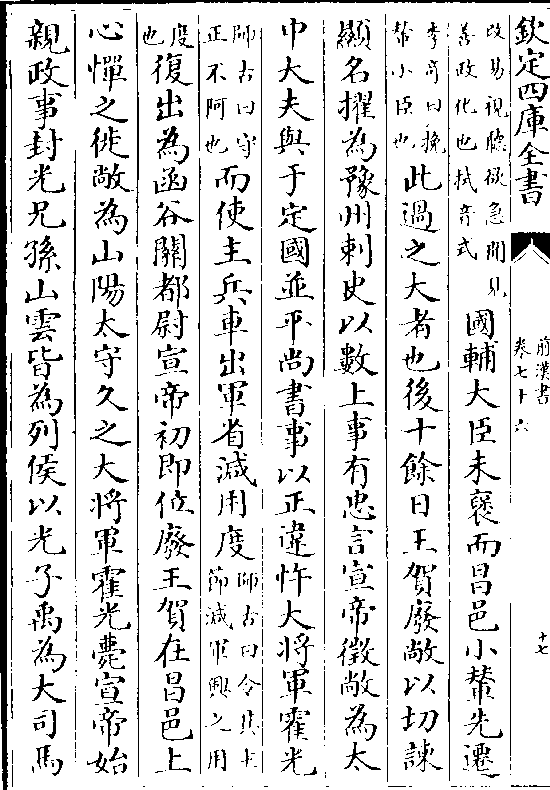 欽定四庫全書
前漢書
卷七十六
十七
改易視聽欲急聞見
善政化也拭音式
國輔大臣未襃而昌邑小輦先遷
李奇曰挽
輦小臣也
此過之大者也後十餘日王賀廢敞以切諫
顯名擢為豫州刺史以數上事有忠言宣帝徵敞為太
中大夫與于定國並平尚書事以正違忤大將軍霍光
師古曰守
正不阿也
而使主兵車出軍省減用度
師古曰令其主
節減軍興之用
度
也
復出為函谷關都尉宣帝初即位廢王賀在昌邑上
心憚之徙敞為山陽太守久之大將軍霍光薨宣帝始
親政事封光兄孫山雲皆為列侯以光子禹為大司馬